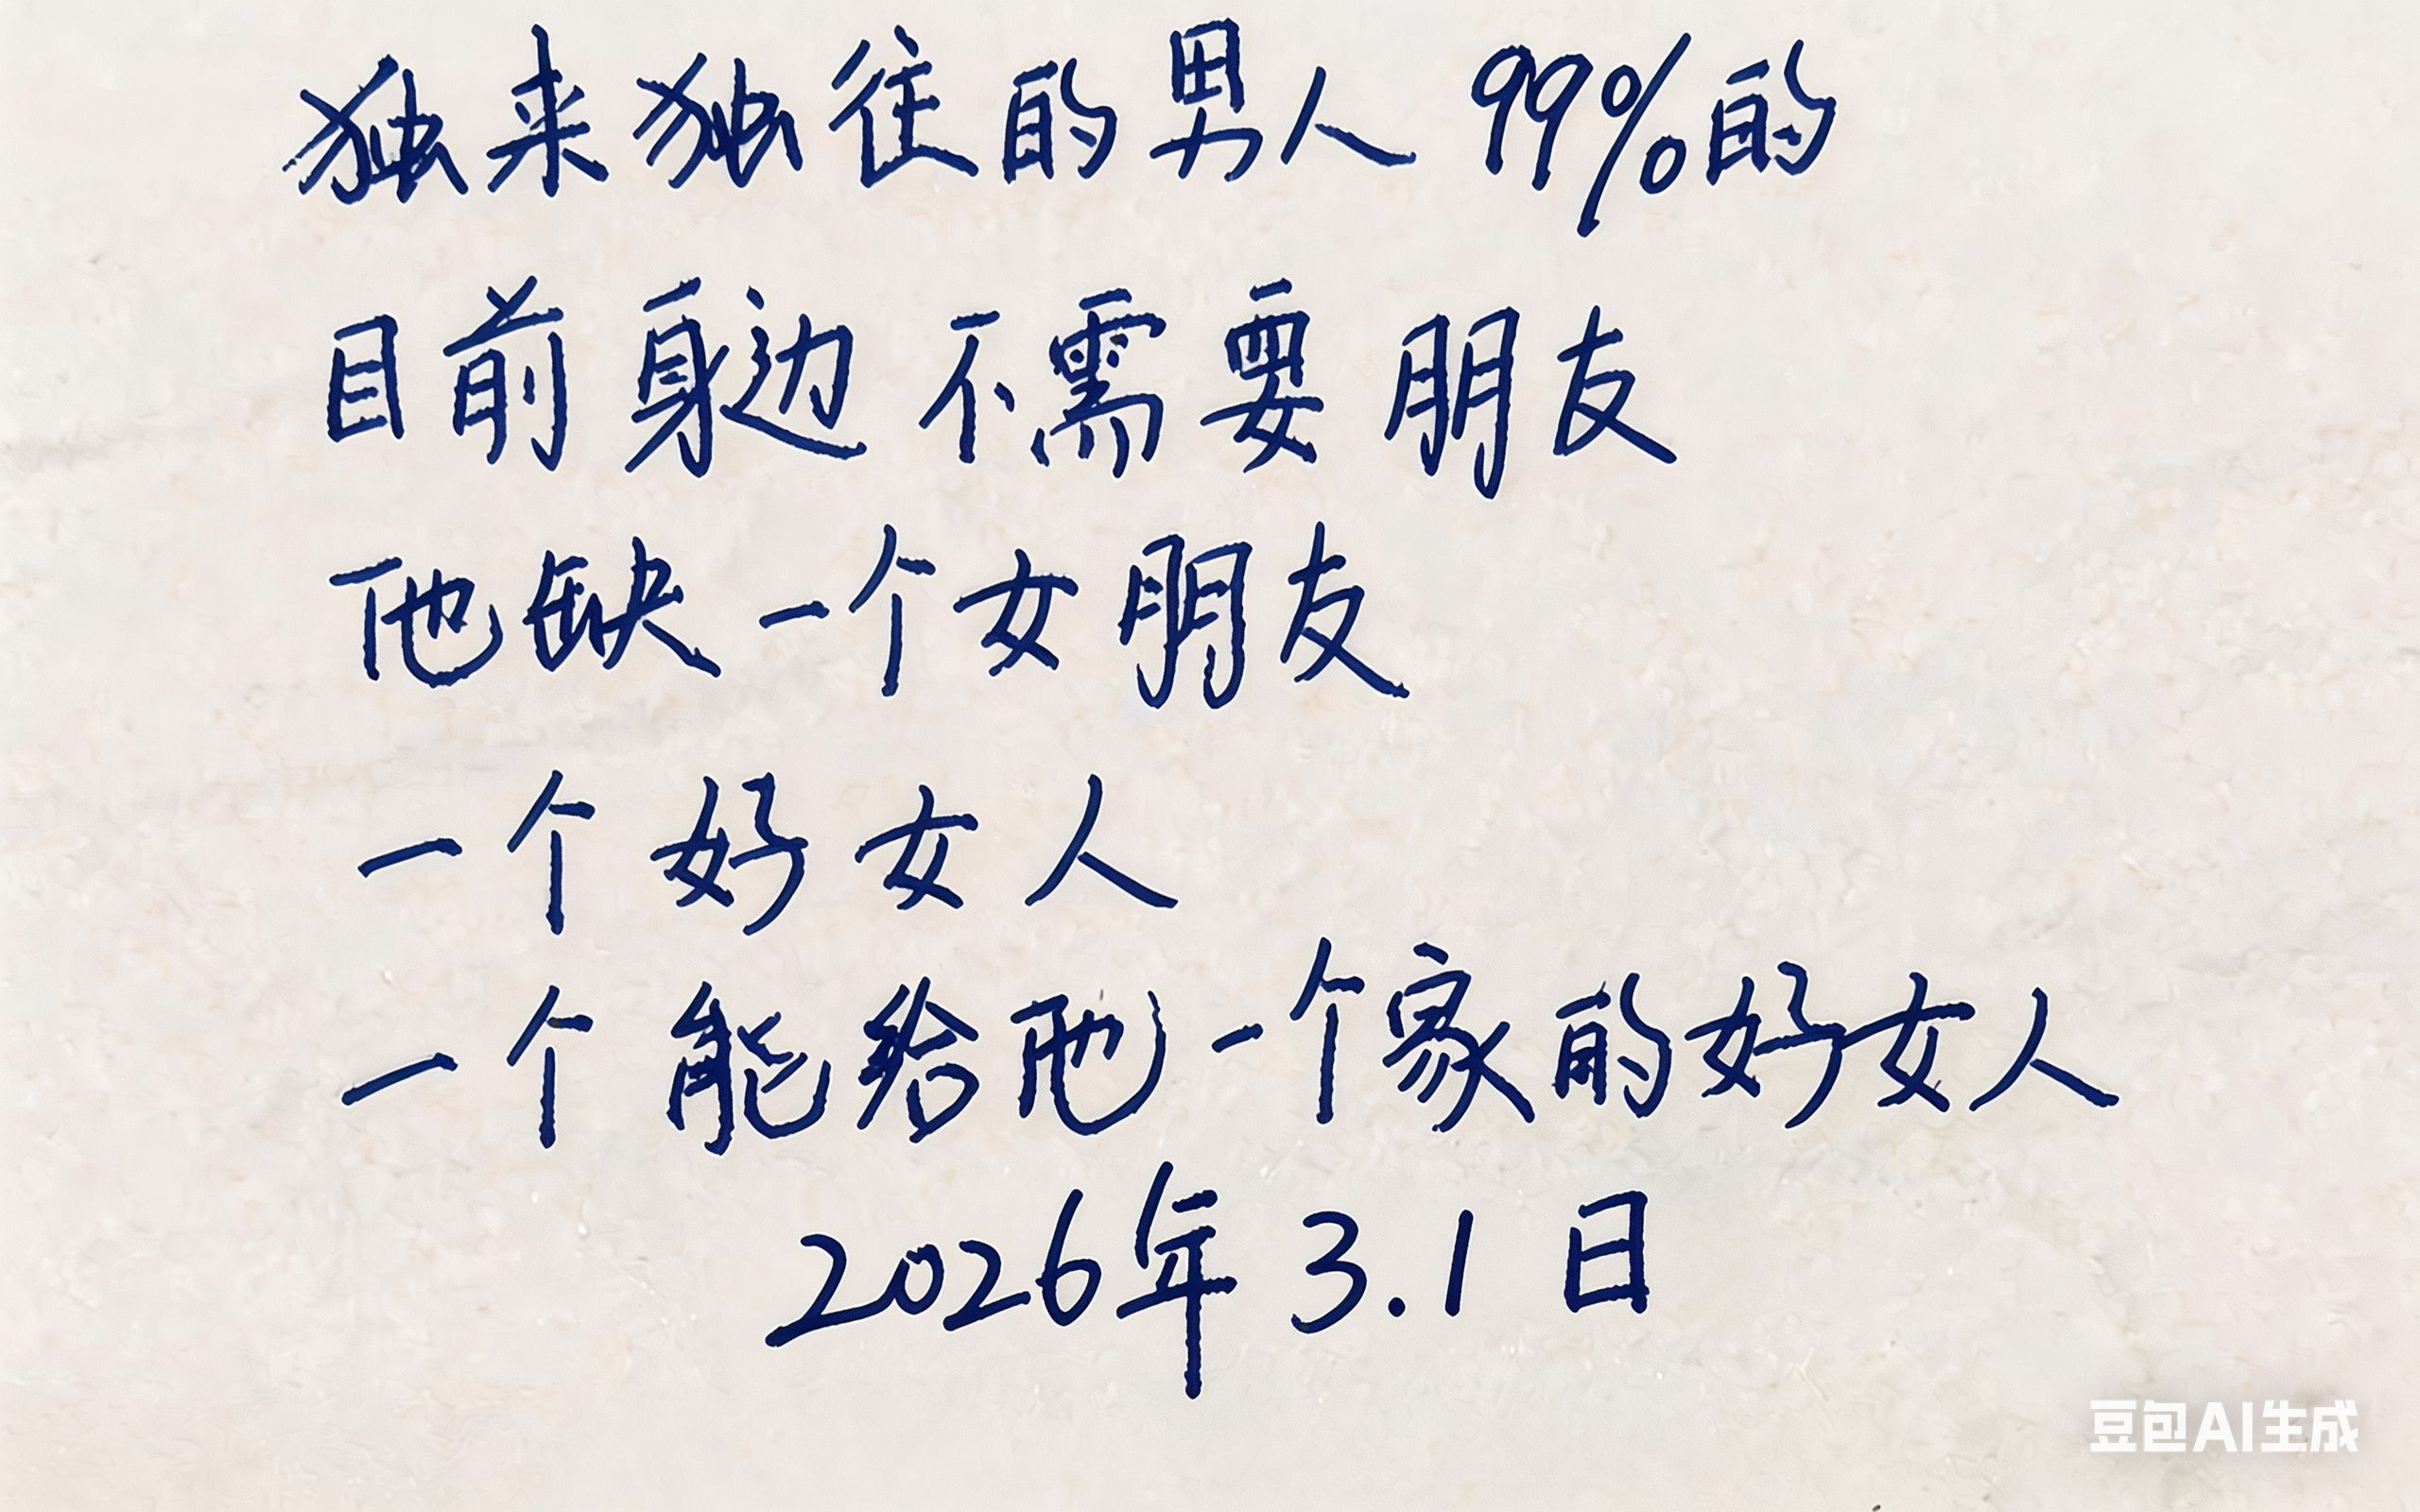 独来独往的男人 99%的
目前身边不需要朋友
他缺一个女朋友
一个好女人
一个能给他一个家的好女人
2026年 3.1 日
豆包AI生成